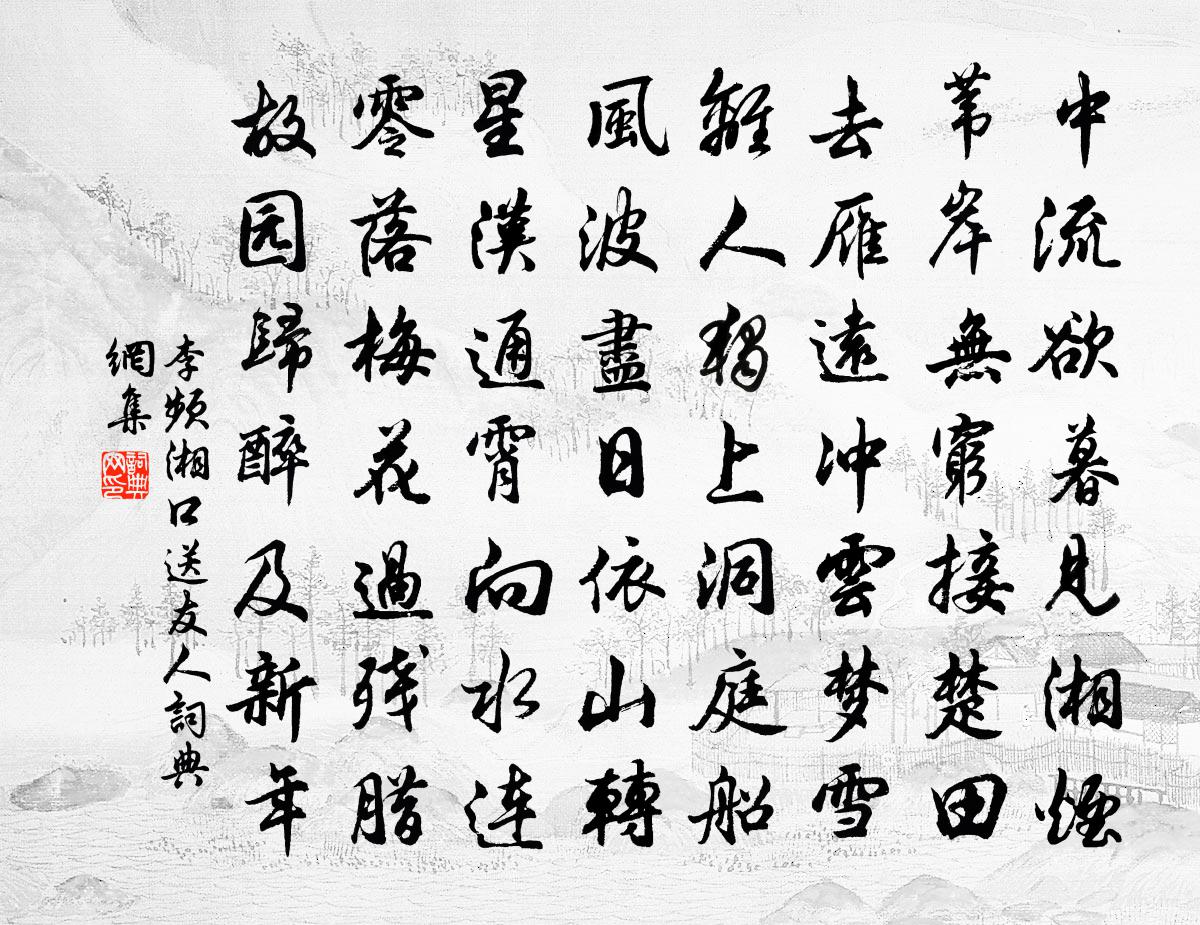 中流欲暮見湘煙
苇岸無窮接楚田
去雁遠冲雲梦雪
離人獨上洞庭船
風波盡日依山轉
星漢通霄向水连
零落梅花過残腊
故园歸醉及新年
李频湘口送友人詞典
網集
詞典
网印